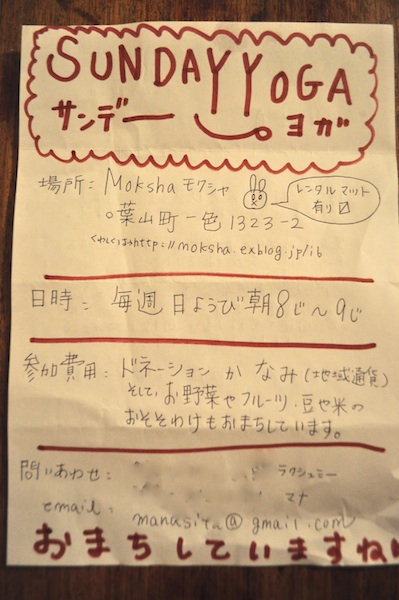 SUNDAY YOGA
サンデー ヨガ
場所: Moksha モクシャ
レンタルマット
有り〼
葉山町一色1323-2
くわしくは→http://moksha.exblog.jp/i6
日時: 毎週日ようび朝8じ〜9じ
参加費用: ドネーション か なみ(地域通貨)
そして、お野菜やフルーツ・豆や米の
おそそわけもおまちしています。
問いあわせ: ラクシュミー
マナ
email: @gmail.com
おまちしていますね